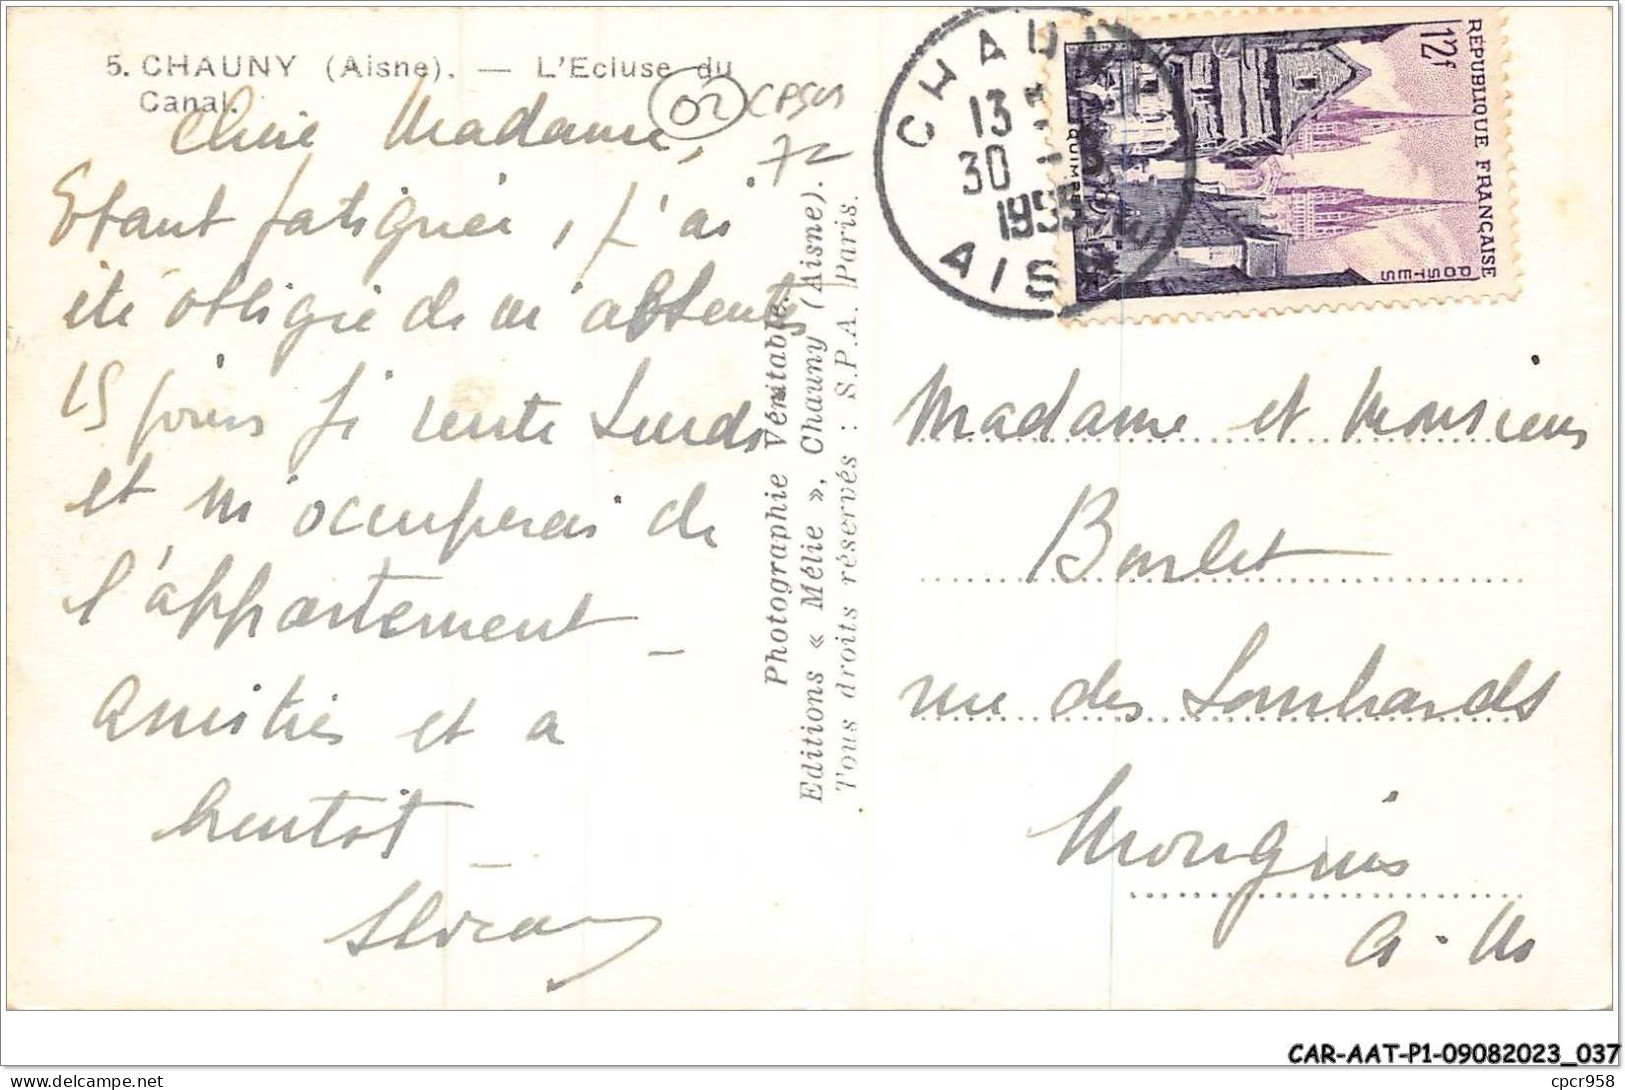 5. CHAUNY (Aisne). — L'Ecluse du
Canal.
02 CPSM
72
Chère Madame,
Etant fatiguée, j'ai
été obligée de m'absenter
15 jours je rentre Lundi
et m'occuperai de
l'appartement _
Amitiés et a
bientot _
Photographie Véritable.
Editions « Mélie », Chauny (Aisne).
Tous droits réservés : S.P.A. Paris.
CHAUNY
13
30
1955
AISNE
REPUBLIQUE FRANÇAISE
12f
POSTES
QUIMPER
Madame et Monsieur
Barlet
rue des Lombards
Mougins
A. M.
CAR-AAT-P1-09082023_037
delcampe.net
cpcr958